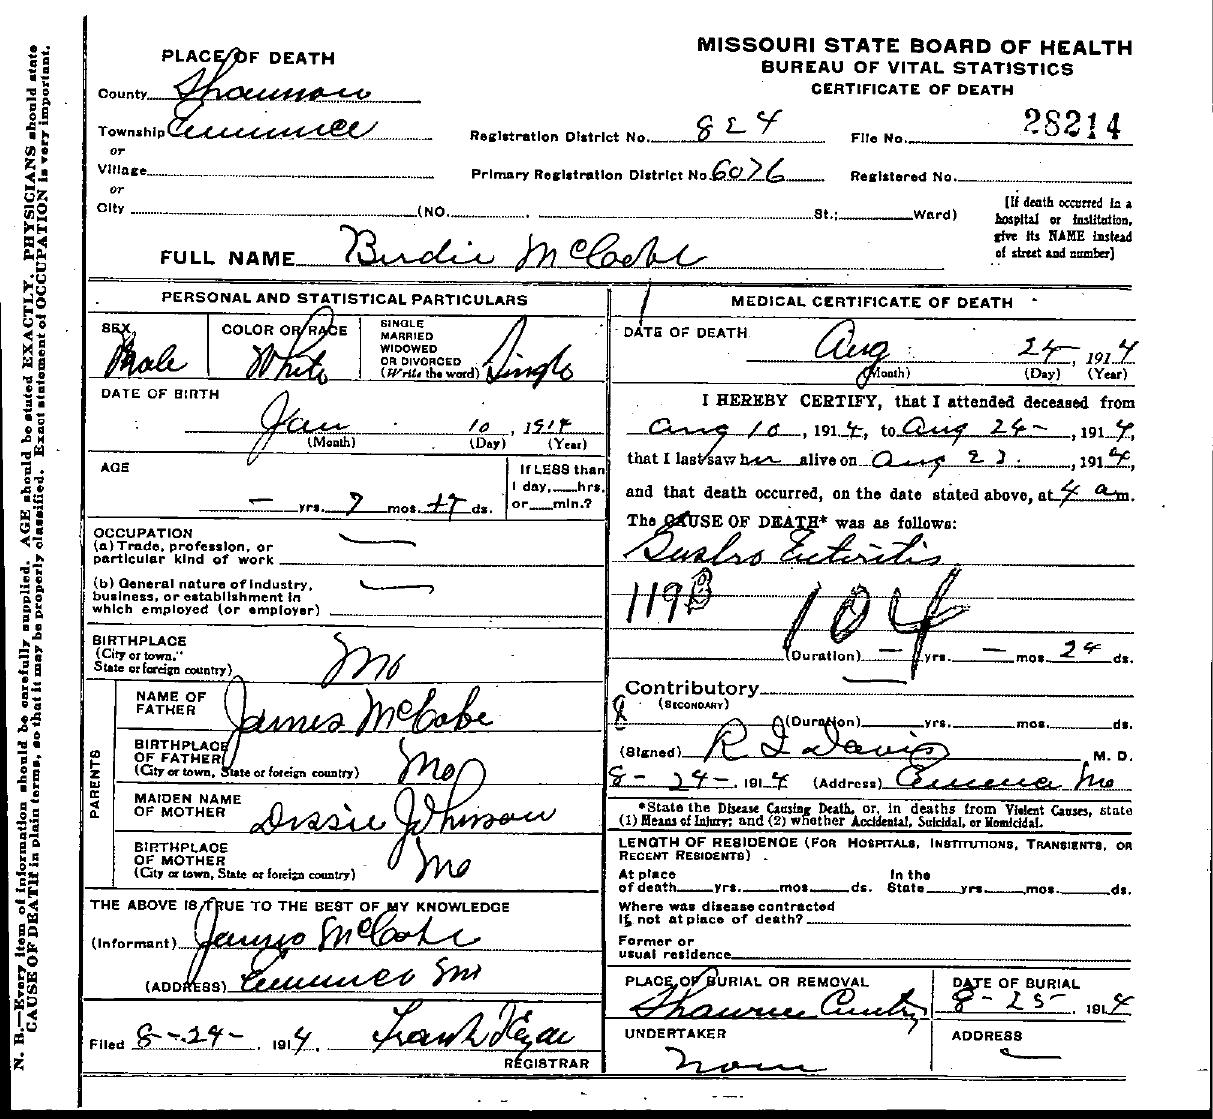 MISSOURI STATE BOARD OF HEALTH
BUREAU OF VITAL STATISTICS
CERTIFICATE OF DEATH
PLACE OF DEATH
County Shannon
Township Eminence
or
Village
or
City (NO. , St.; Ward)
Registration District No. 824 File No. 28214
Primary Registration District No. 6076 Registered No.
[If death occurred in a
hospital or institution,
give its NAME instead
of street and number]
FULL NAME Birdie McCabe
PERSONAL AND STATISTICAL PARTICULARS
SEX
Male
COLOR OR RACE
White
SINGLE
MARRIED
WIDOWED
OR DIVORCED
(Write the word) Single
DATE OF BIRTH
Jan 10, 1914
(Month) (Day) (Year)
AGE
— yrs. 7 mos. ds.
If LESS than
1 day, hrs.
or min.?
OCCUPATION
(a) Trade, profession, or
particular kind of work —
(b) General nature of industry,
business, or establishment in
which employed (or employer) —
BIRTHPLACE
(City or town,
State or foreign country) Mo
PARENTS
NAME OF
FATHER James McCabe
BIRTHPLACE
OF FATHER
(City or town, State or foreign country) Mo
MAIDEN NAME
OF MOTHER Dessie Johnson
BIRTHPLACE
OF MOTHER
(City or town, State or foreign country) Mo
THE ABOVE IS TRUE TO THE BEST OF MY KNOWLEDGE
(Informant) James McCabe
(ADDRESS) Eminence Mo
Filed 8-24-, 1914, Frank
REGISTRAR
MEDICAL CERTIFICATE OF DEATH
DATE OF DEATH
Aug 24, 1914
(Month) (Day) (Year)
I HEREBY CERTIFY, that I attended deceased from
Aug 10, 1914, to Aug 24-, 1914,
that I last saw him alive on Aug 23, 1914,
and that death occurred, on the date stated above, at 4 am.
The CAUSE OF DEATH* was as follows:
Gastro Enteritis
119B 104
(Duration) — yrs. — mos. 24 ds.
Contributory
(SECONDARY)
(Duration) yrs. mos. ds.
(Signed) R I Davis, M. D.
8-24-, 1914 (Address) Eminence Mo
*State the Disease Causing Death, or, in deaths from Violent Causes, state
(1) Means of Injury; and (2) whether Accidental, Suicidal, or Homicidal.
LENGTH OF RESIDENCE (FOR HOSPITALS, INSTITUTIONS, TRANSIENTS, OR
RECENT RESIDENTS).
At place
of death yrs. mos. ds.
In the
State yrs. mos. ds.
Where was disease contracted
If not at place of death?
Former or
usual residence
PLACE OF BURIAL OR REMOVAL
Shawnee
DATE OF BURIAL
8-25-, 1914
UNDERTAKER
None
ADDRESS
N. B.—Every item of information should be carefully supplied. AGE should be stated EXACTLY. PHYSICIANS should state
CAUSE OF DEATH in plain terms, so that it may be properly classified. Exact statement of OCCUPATION is very important.